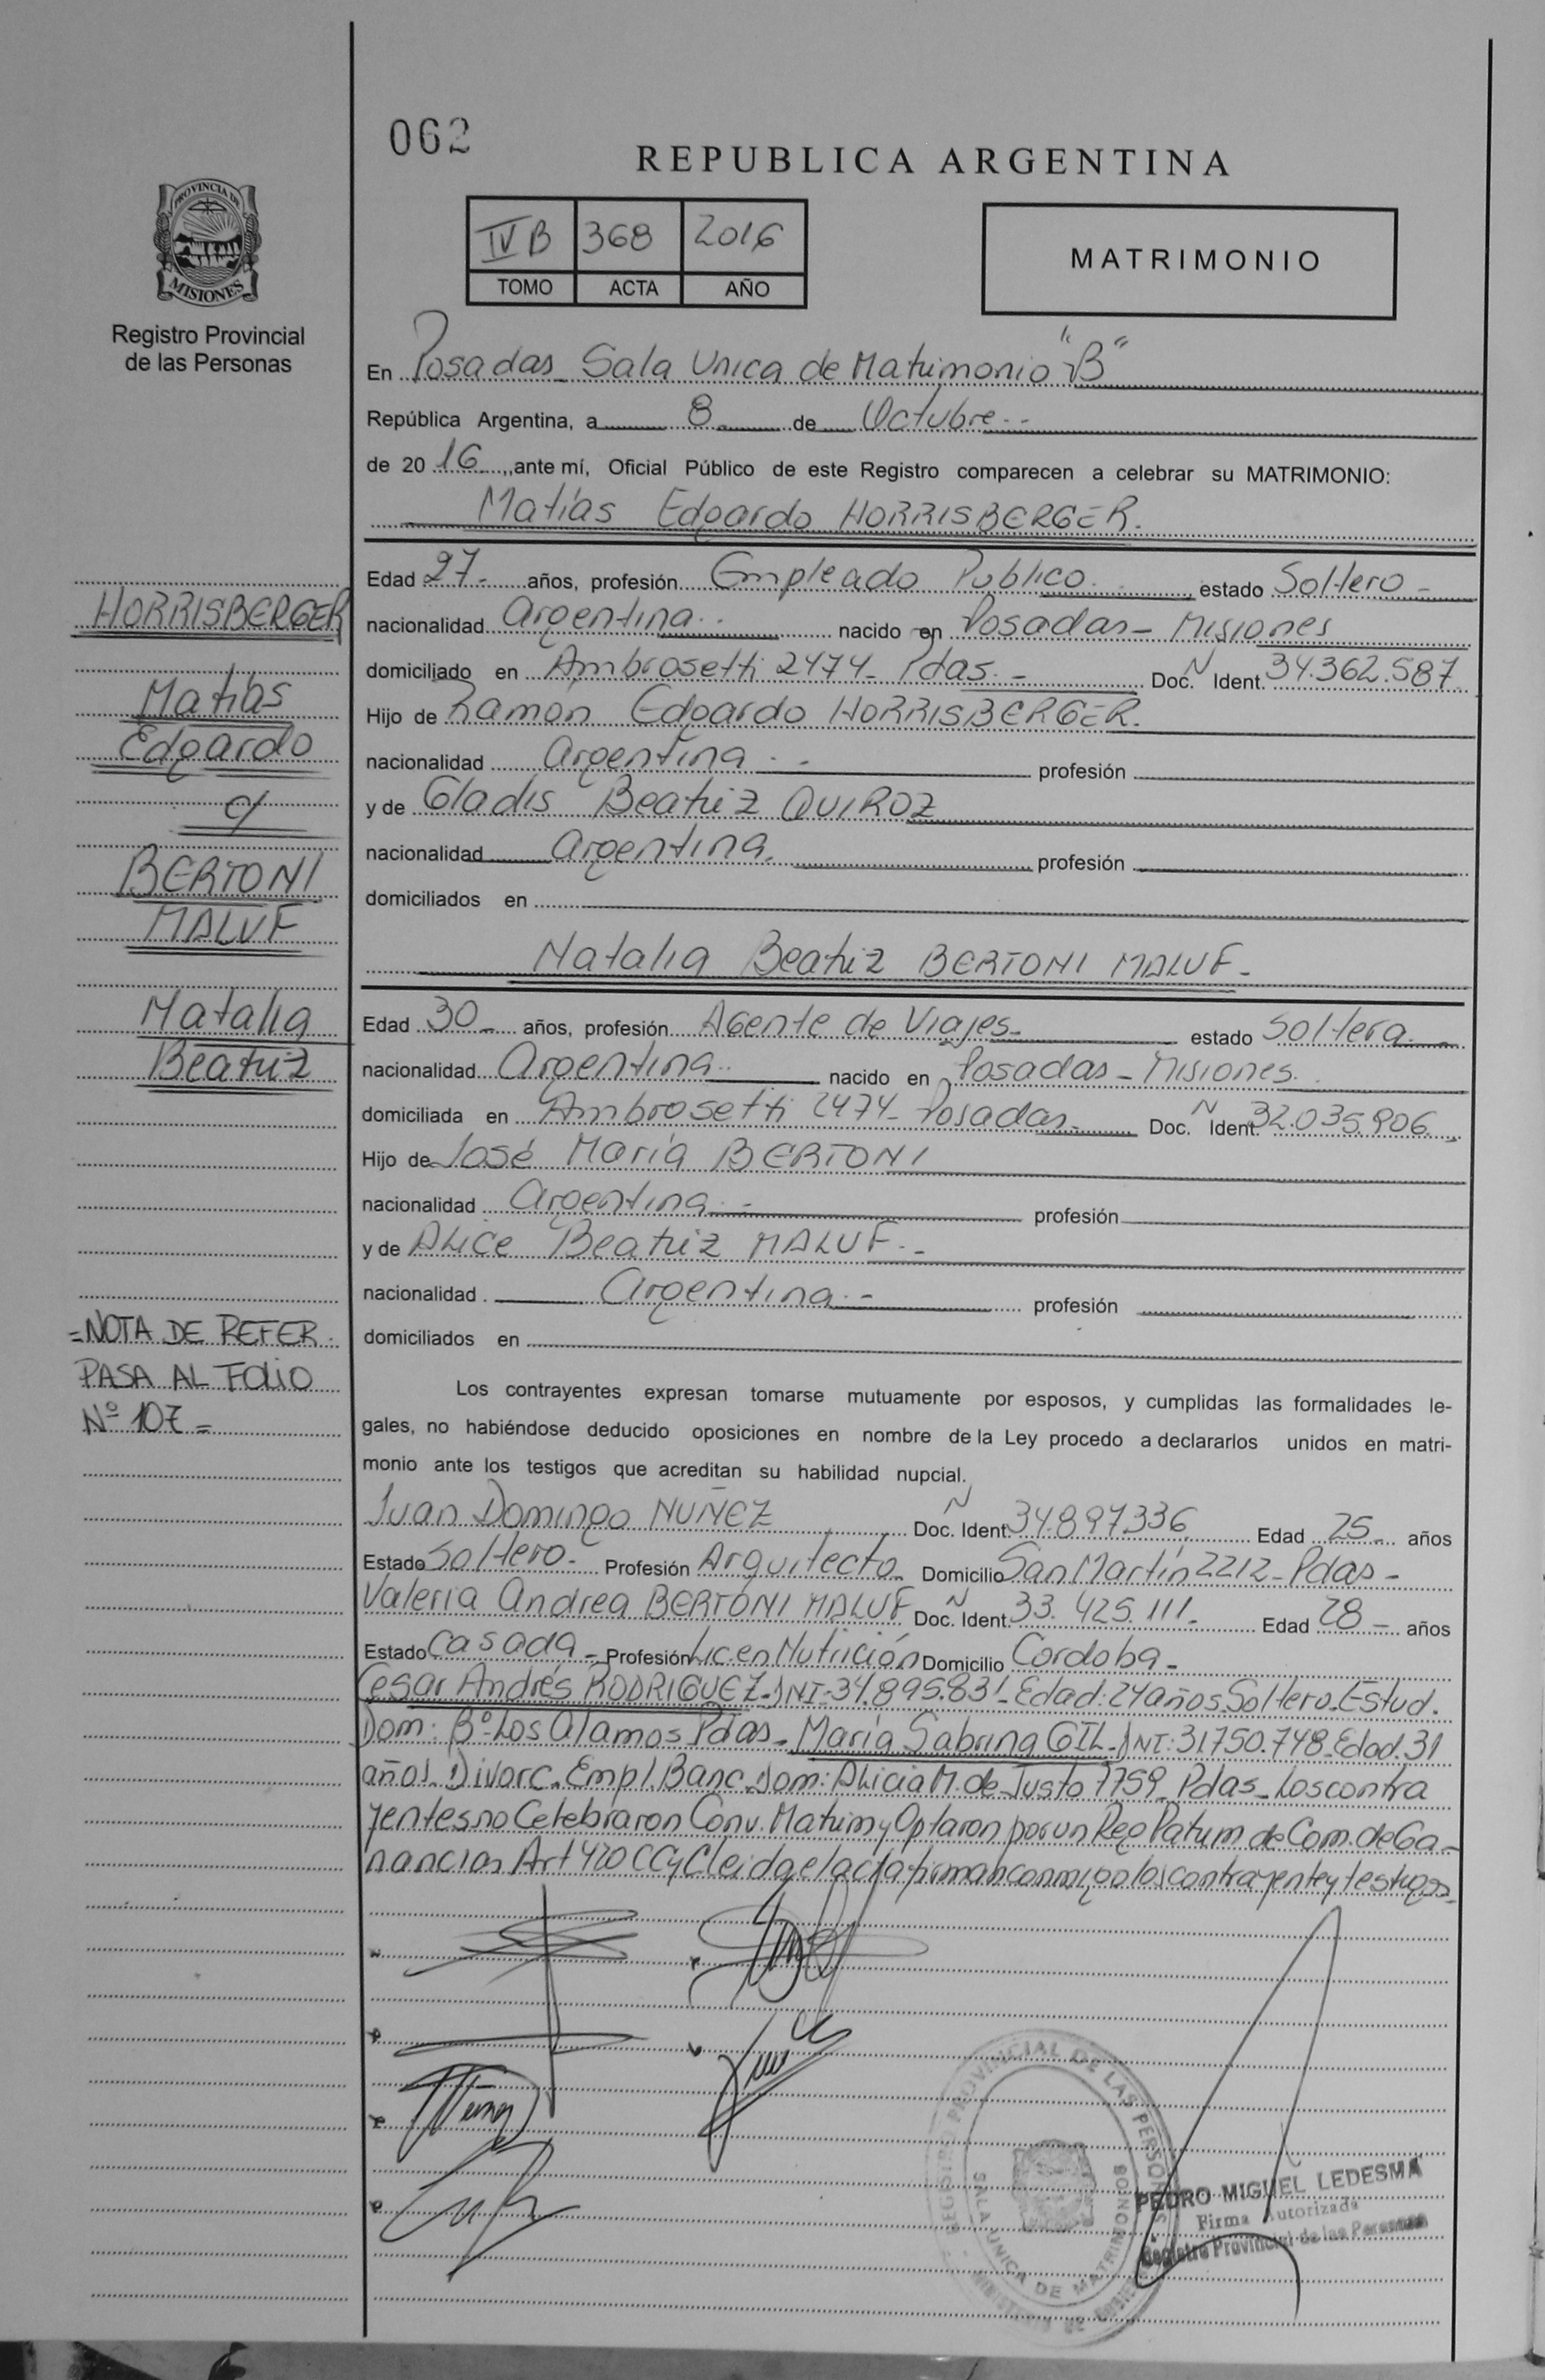 062
REPUBLICA ARGENTINA
IV B 368 2016
TOMO ACTA AÑO
MATRIMONIO
PROVINCIA DE
MISIONES
Registro Provincial
de las Personas
En Posadas_ Sala Unica de Matrimonio "B"
República Argentina, a 8 de Octubre
de 20 16, ante mí, Oficial Público de este Registro comparecen a celebrar su MATRIMONIO:
Matías Edgardo HORRISBERGER.
Edad 27 años, profesión Empleado Publico estado Soltero
nacionalidad Argentina nacido en Posadas - Misiones
domiciliado en Ambrosetti 2474 - Pdas. Doc. N Ident. 34.362.587
Hijo de Ramón Edgardo HORRISBERGER.
nacionalidad Argentina profesión
y de Gladis Beatriz QUIROZ
nacionalidad Argentina profesión
domiciliados en
Natalia Beatriz BERTONI MALUF
Edad 30 años, profesión Agente de Viajes estado Soltera
nacionalidad Argentina nacido en Posadas - Misiones
domiciliada en Ambrosetti 2474 - Posadas Doc. N Ident. 32.035.906
Hijo de José María BERTONI
nacionalidad Argentina profesión
y de Alice Beatriz MALUF
nacionalidad Argentina profesión
domiciliados en
Los contrayentes expresan tomarse mutuamente por esposos, y cumplidas las formalidades le-
gales, no habiéndose deducido oposiciones en nombre de la Ley procedo a declararlos unidos en matri-
monio ante los testigos que acreditan su habilidad nupcial.
Juan Domingo NUÑEZ Doc. N Ident. 34.897.336 Edad 25 años
Estado Soltero Profesión Arquitecto Domicilio San Martín 2212 - Pdas -
Valeria Andrea BERTONI MALUF Doc. N Ident. 33.425.111 Edad 28 años
Estado Casada Profesión Lic. en Nutrición Domicilio Cordoba
Cesar Andrés RODRIGUEZ - DNI: 34.895.831 - Edad: 24 años. Soltero. Estud.
Dom: Bº Los Alamos Pdas - María Sabrina GIL - DNI: 31.750.748 - Edad. 31
años. Divorc. Empl. Banc. Dom: Alicia M. de Justo 7759 - Pdas - Los contra
yentes no Celebraron Conv. Matrim y Optaron por un Reg Patrim de Com. de Ga-
nancias Art 420 CCyC leida el acta firman conmigo los contrayente y testigos.
HORRISBERGER
Matías
Edgardo
c/
BERTONI
MALUF
Natalia
Beatriz
=NOTA DE REFER.
PASA AL FOLIO
Nº 107=
REGISTRO PROVINCIAL DE LAS PERSONAS
SALA UNICA DE MATRIMONIOS
PEDRO MIGUEL LEDESMA
Firma Autorizada
Registro Provincial de las Personas